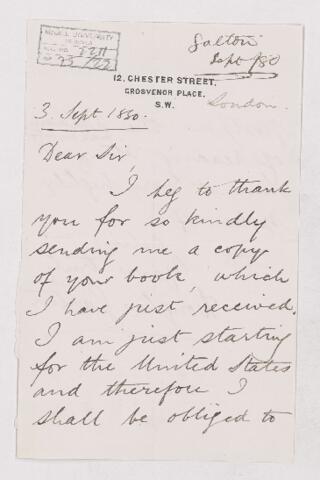 McGILL UNIVERSITY
ACC. NO. 2211
Galton
Sept /80
12, CHESTER STREET,
GROSVENOR PLACE,
S.W.
London.
3. Sept 1880.
Dear Sir,
I beg to thank
you for so kindly
sending me a copy
of your book, which
I have just received.
I am just starting
for the United States
and therefore I
shall be obliged to